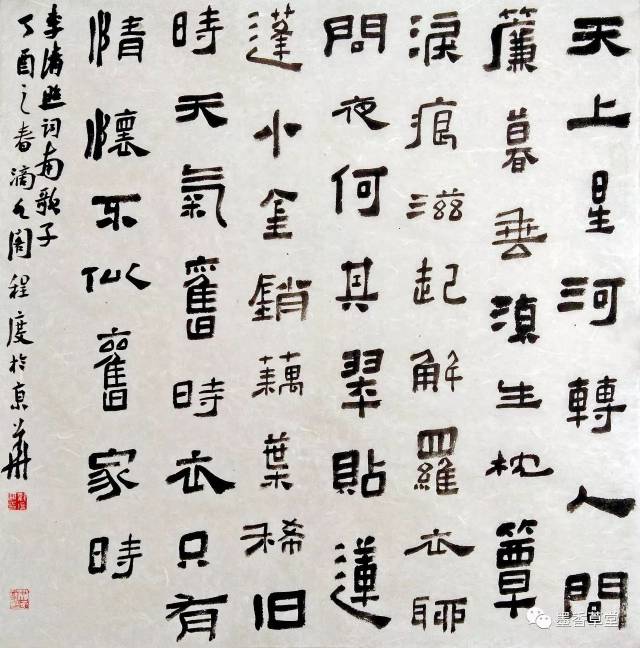 天上星河轉人間
簾暮垂涼生枕簟
淚痕滋起解羅衣聊
問夜何其翠貼蓮
蓬小金銷藕葉稀旧
時天氣舊時衣只有
情懷不似舊家時
李清照词南歌子
丁酉之春滴閣程度於京華
墨香草堂